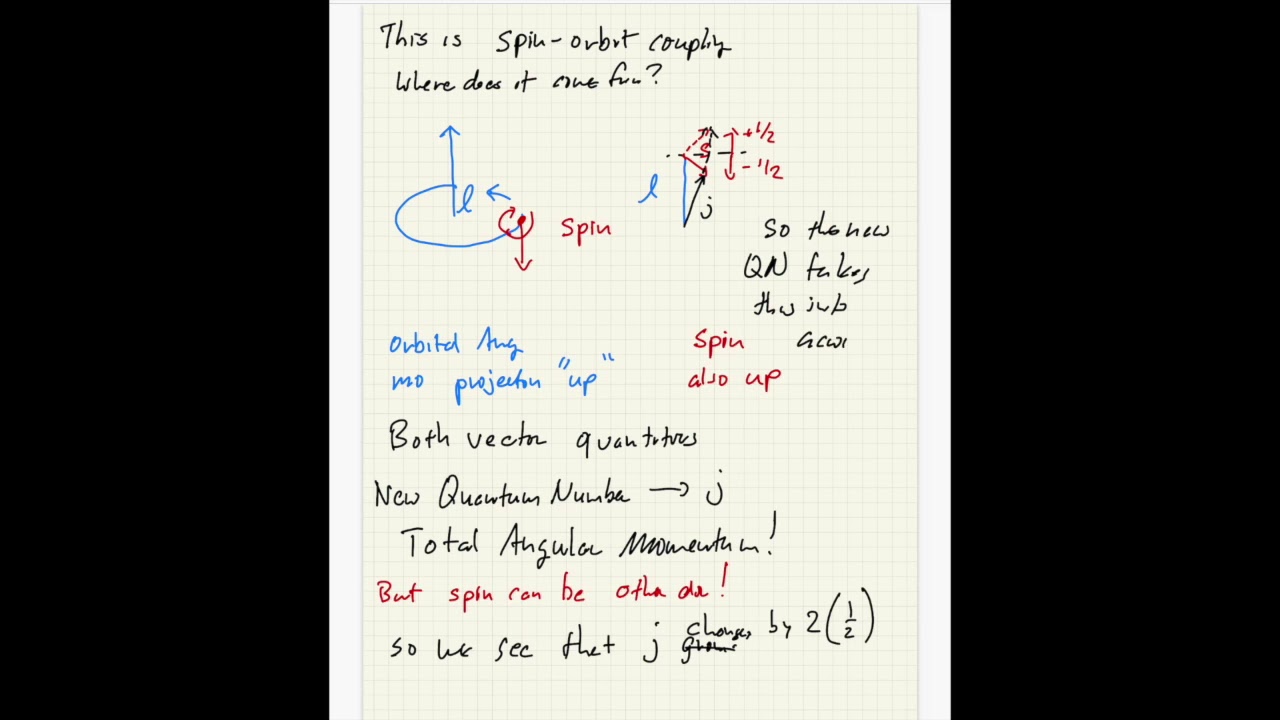 This is spin-orbit coupling
Where does it come from?
+1/2
S
- 1/2
l
l
j
spin
so the new
QN takes
this into
accu
Orbital Ang
mo projection "up"
Spin
also up
Both vector quantities
New Quantum Number → j
Total Angular Momentum!
But spin can be other dir!
so we see that j changes by 2(1/2)